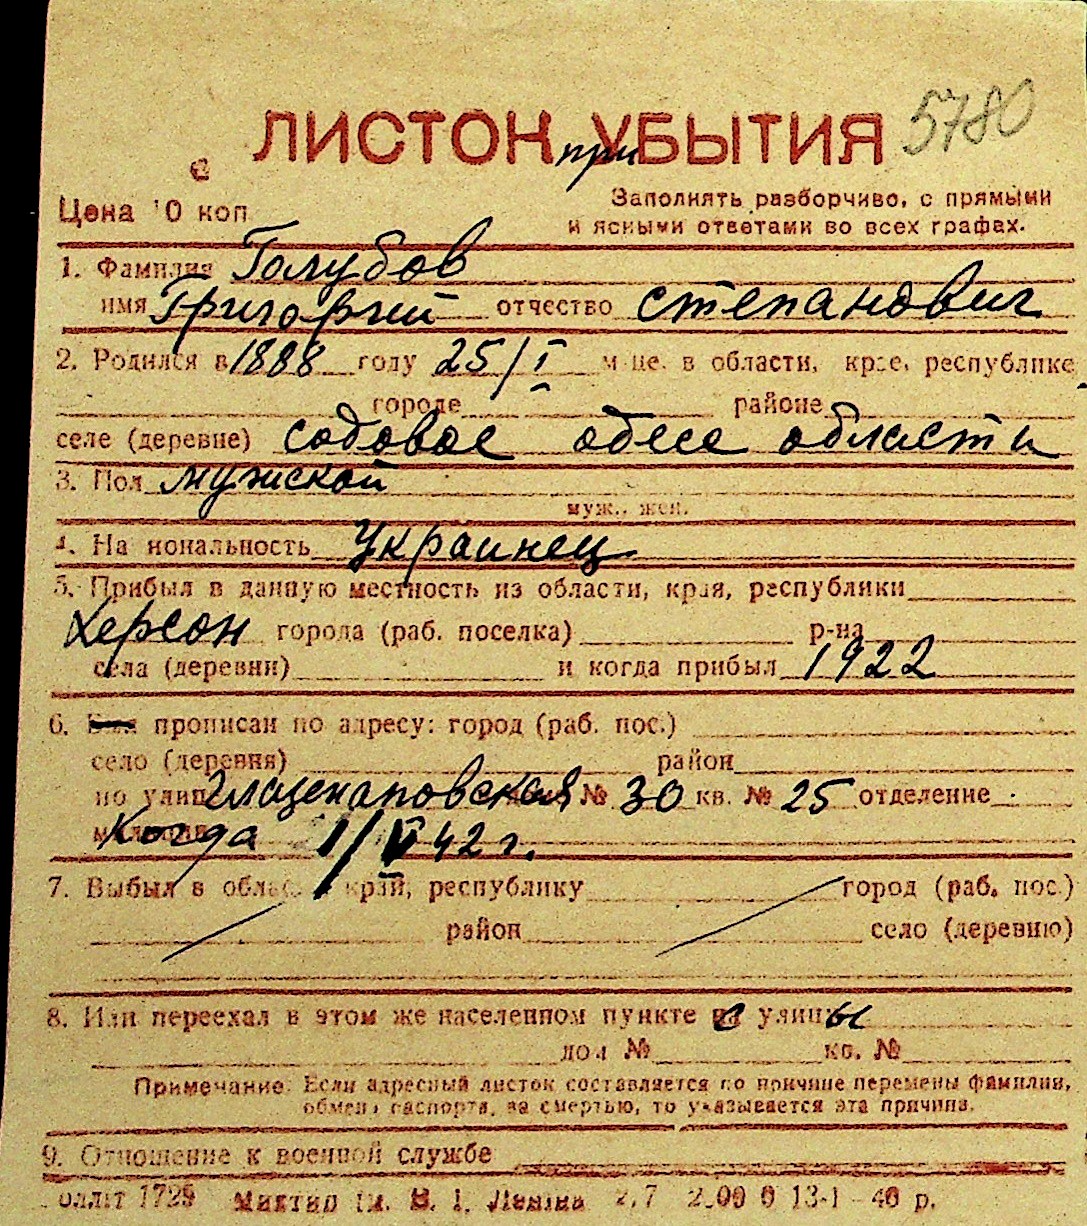 5780
ЛИСТОК при УБЫТИЯ
Цена 10 коп
Заполнять разборчиво, с прямыми
и ясными ответами во всех графах.
1. Фамилия Голубов
имя Григорий отчество степанович
2. Родился в 1888 году 25/I м-це в области, крае, республике
городе районе
селе (деревне) садовое одесе области
3. Пол мужской
муж., жен.
4. Национальность Украинец
5. Прибыл в данную местность из области, края, республики
Херсон города (раб. поселка) р-на
села (деревни) и когда прибыл 1922
6. прописан по адресу: город (раб. пос.)
село (деревня) район
по улице Глазенаповская № 30 кв. № 25 отделение
Когда 1/VI 42 г.
7. Выбыл в область, край, республику город (раб. пос.)
район село (деревню)
8. Или переехал в этом же населенном пункте с улицы
дом № кв. №
Примечание: Если адресный листок составляется по причине перемены фамилии,
обмена паспорта, за смертью, то указывается эта причина.
9. Отношение к военной службе
1729 В. І. Леніна 13-1-40 р.